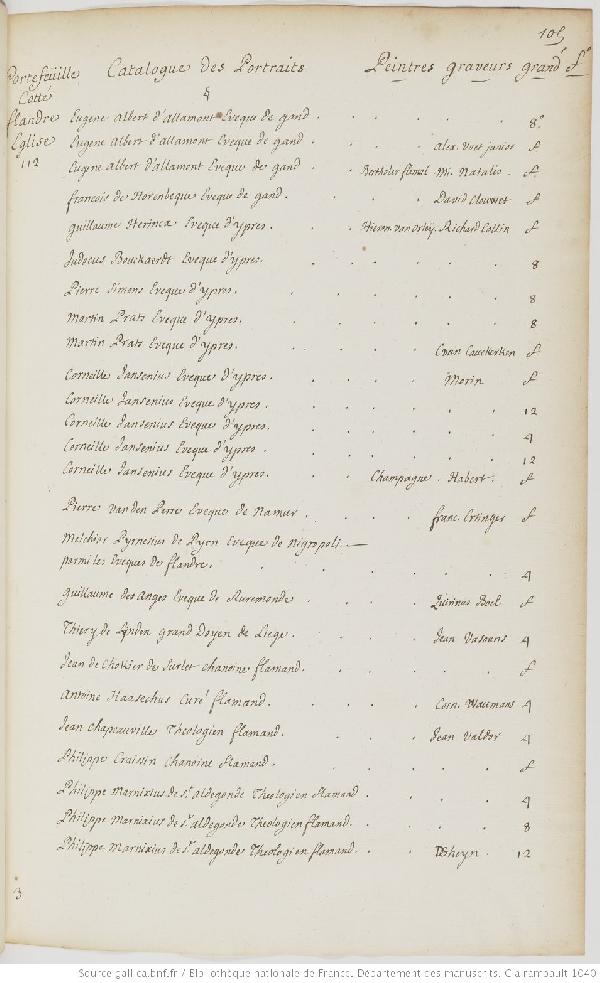 105
Portefeüille Catalogue des Portraits Peintres graveurs grand.r f.o
Cotté §
flandre Eugene Albert d'allamont Eveque de gand . . . . . 8.o
Eglise Eugene Albert d'allamont Eveque de gand . . . Alex. Voet junior f
112 Eugene Albert d'allamont Eveque de gand . . Bartholet flemel Mi. Natalis . f.
francois de Horenbeque Eveque de gand . . . . David Clouwet f
guillaume Herinca Eveque d'ypres . . . Hieron. van Orley. Richard Collin f
Judocus Bouckaerdt Eveque d'ypres . . . . . 8
Pierre Simons Eveque d'ypres . . . . . . 8
Martin Prats Eveque d'ypres . . . . . 8
Martin Prats Eveque d'ypres . . . . Coenr Lauckerken f
Corneille Jansenius Eveque d'ypres . . . . Morin f
Corneille Jansenius Eveque d'ypres . . . . . . 12
Corneille Jansenius Eveque d'ypres . . . . . . 4
Corneille Jansenius Eveque d'ypres . . . . . . 12
Corneille Jansenius Eveque d'ypres . . . Champagne . Habert . f
Pierre vanden Perre Eveque de Namur . . . . franc. Ertinger f
Melchior Pyenesius de Pyen Eveque de Nigropoli —
parmi les Eveques de flandre . . . . . . 4
guillaume des Anges Eveque de Ruremonde . . . Quirinus Boel f
Thiery de Lynden grand Doyen de Liege . . . . Jean Vasoens 4
Jean de Chokier de Surlet chanoine flamand . . . . . f
Antoine Haasechus Curé flamand . . . . Corn. Waumans 4
Jean Chapeauville Theologien flamand . . . . Jean Valdor 4
Philippe Craissin Chanoine flamand . . . . . f
Philippe Marnixius de S.t aldegonde Theologien flamand . . . . 4
Philippe Marnixius de S.t aldegonde Theologien flamand . . . . 8
Philippe Marnixius de S.t aldegonde Theologien flamand . . . Dsheyn . 12
3
Source gallica.bnf.fr / Bibliothèque nationale de France. Département des manuscrits. Clairambault 1040